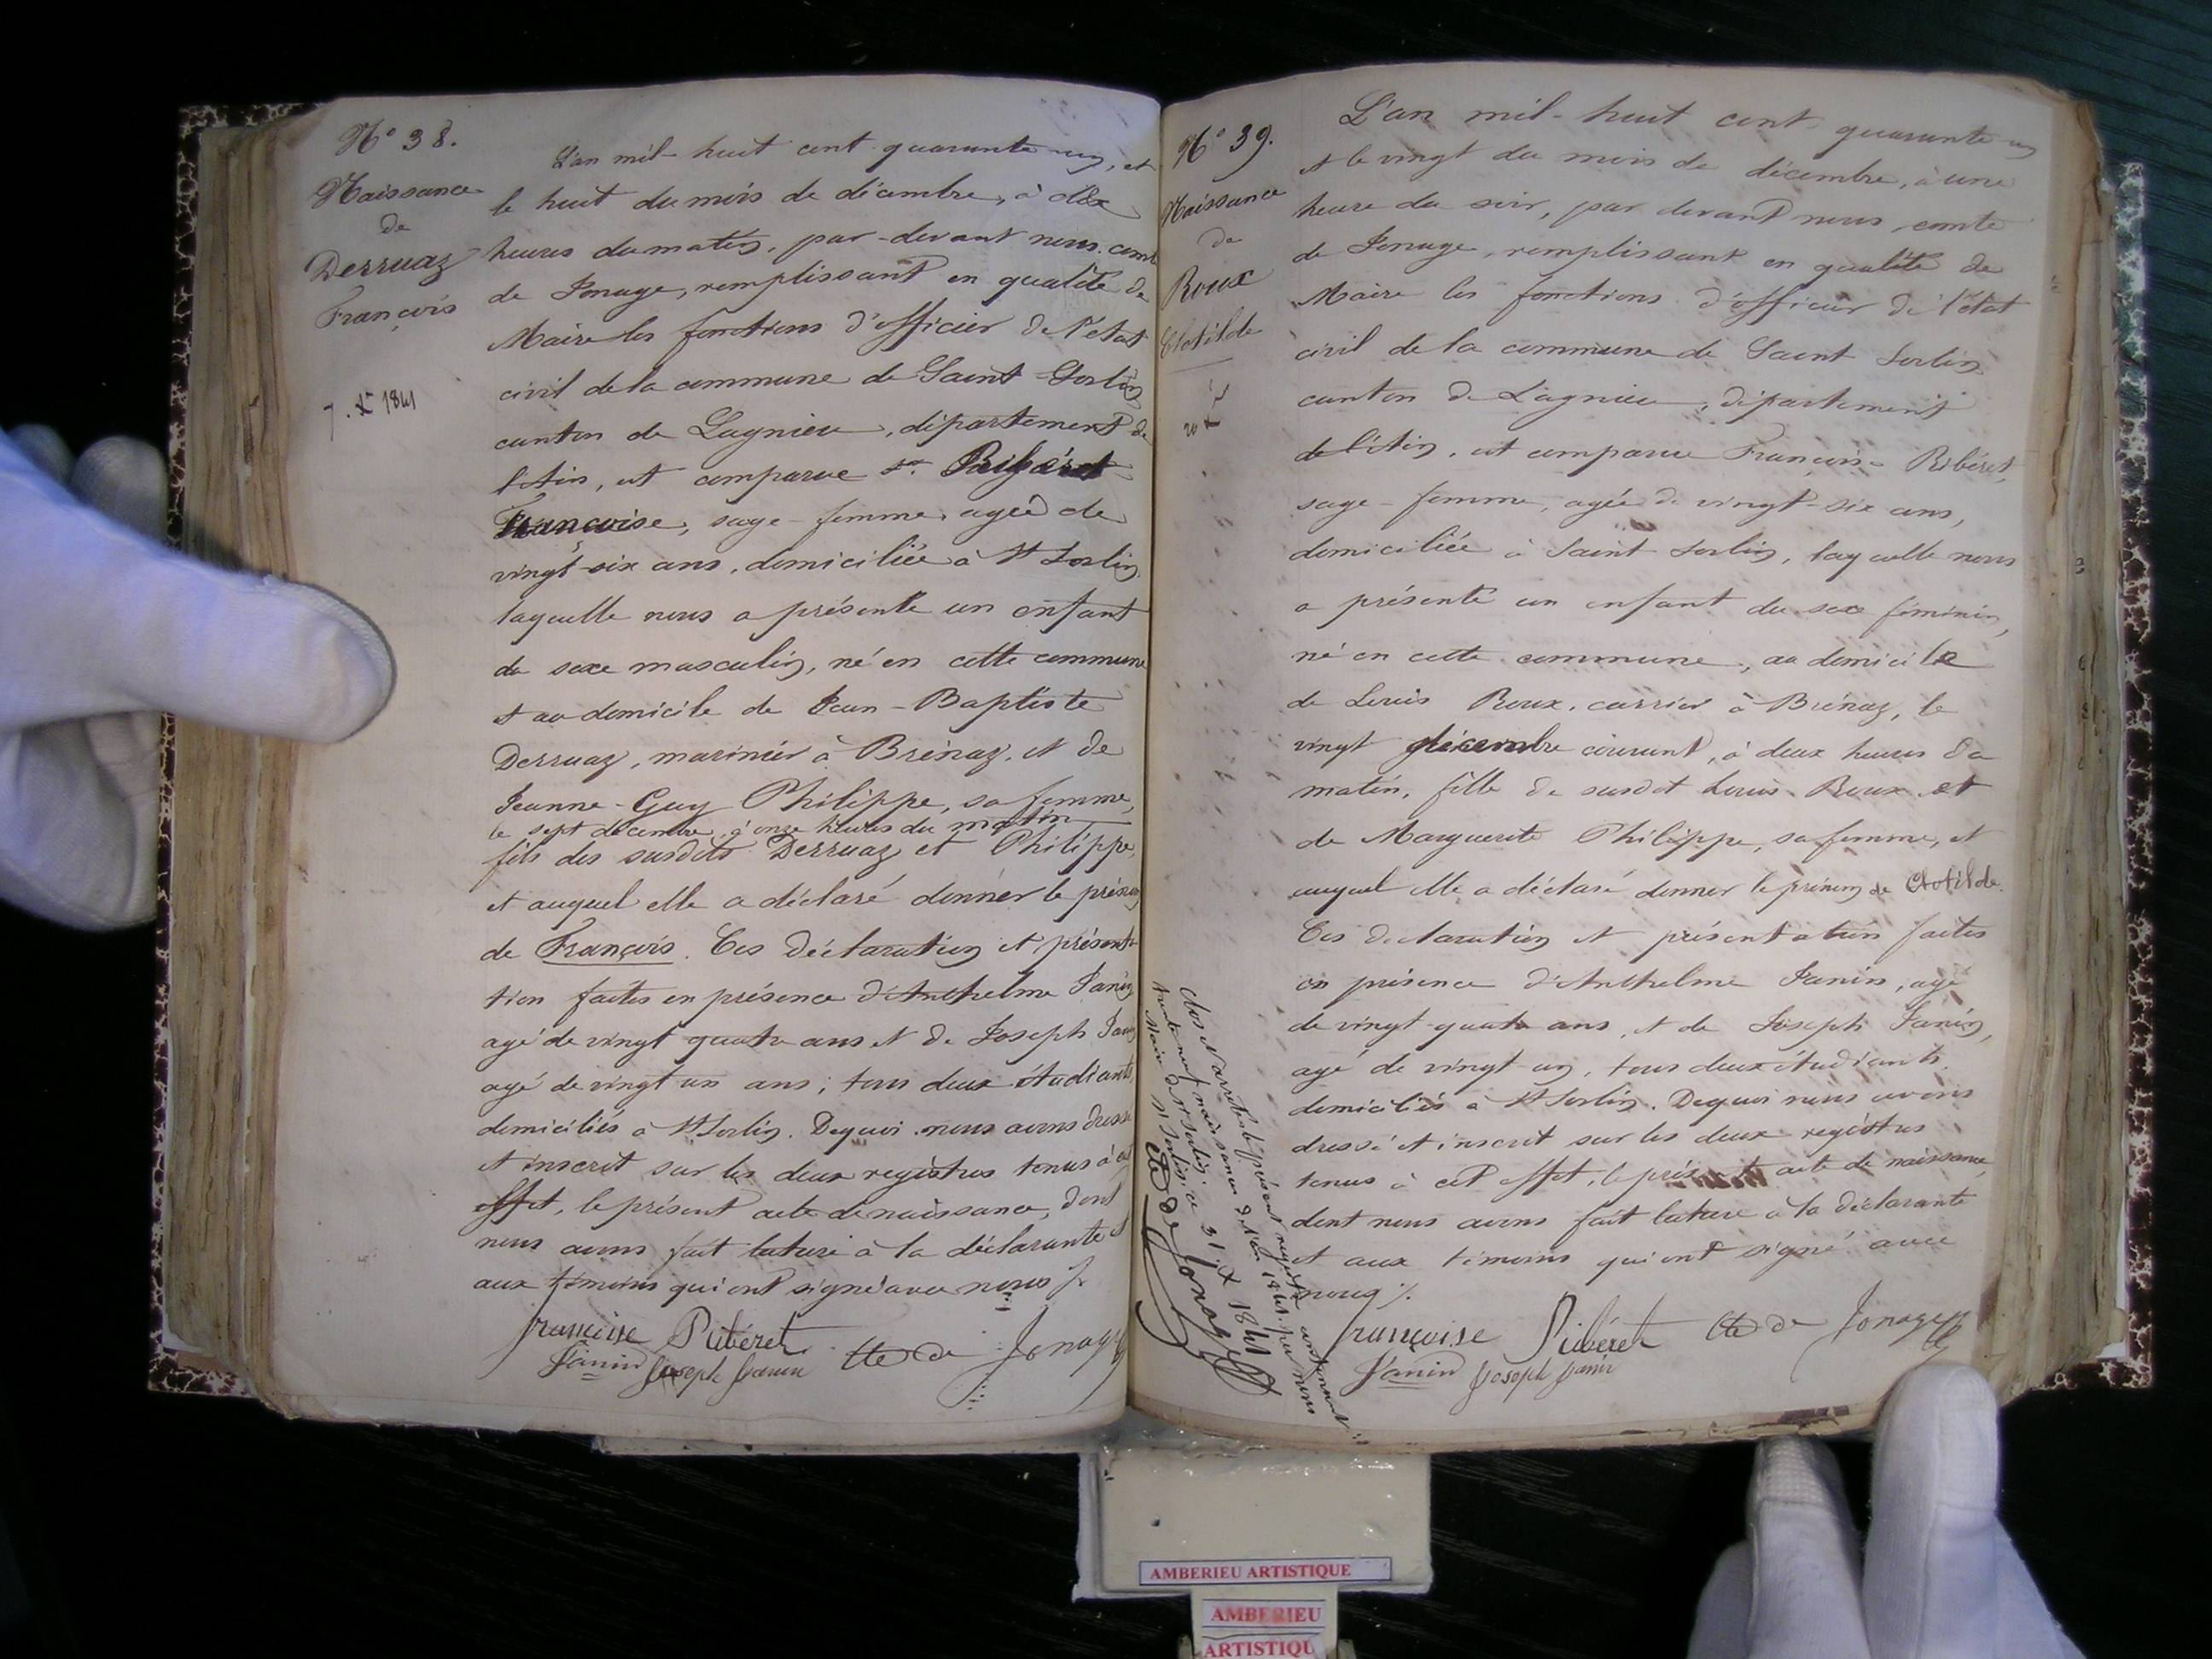 N° 38.
Naissance
de
Derruaz
François
7. Xre 1841
L'an mil-huit cent quarante-un, et
le huit du mois de décembre, à dix
heures du matin, par-devant nous, comte
de Jonage, remplissant en qualité de
Maire les fonctions d'officier de l'état
civil de la commune de Saint-Sorlin
canton de Lagnieu, département de
l'Ain, est comparue
Françoise, sage-femme, agée de
vingt-six ans, domiciliée à St Sorlin,
laquelle nous a présenté un enfant
du sexe masculin, né en cette commune
et au domicile de Jean-Baptiste
Derruaz, marinier à Brénaz, et de
Jeanne-Guy Philippe, sa femme,
le sept décembre, à onze heures du matin
fils des susdits Derruaz et Philippe,
et auquel elle a déclaré donner le prénom
de François. Ces déclaration et présenta-
tion faites en présence d'Anthelme Janin
agé de vingt quatre ans et de Joseph Janin
agé de vingt un ans; tous deux étudiants,
domiciliés à St Sorlin. De quoi nous avons dressé
et inscrit sur les deux registres tenus à cet
effet, le présent acte de naissance, dont
nous avons fait lecture à la déclarante et
aux témoins qui ont signé avec nous /.
françoise Ribéret
Janin Joseph Janin Cte de Jonage
N° 39.
Naissance
de
Roux
Clotilde
20 Xre
L'an mil-huit cent quarante un
et le vingt du mois de décembre, à une
heure du soir, par devant nous, comte
de Jonage, remplissant en qualité de
Maire les fonctions d'officier de l'état
civil de la commune de Saint Sorlin
canton de Lagnieu, département
de l'Ain, est comparue Françoise Ribéret,
sage-femme, agée de vingt-six ans,
domiciliée à Saint-Sorlin, laquelle nous
a présenté un enfant du sexe féminin,
né en cette commune, au domicile
de Louis Roux, carrier à Brénaz, le
vingt décembre courant, à deux heures du
matin, fille de susdit Louis Roux et
de Marguerite Philippe, sa femme, et
auquel elle a déclaré donner le prénom de Clotilde.
Ces déclaration et présentation faites
en présence d'Anthelme Janin, agé
de vingt-quatre ans, et de Joseph Janin,
agé de vingt-un, tous deux étudiants,
domiciliés à St Sorlin. De quoi nous avons
dressé et inscrit sur les deux registres
tenus à cet effet, le présent acte de naissance,
dont nous avons fait lecture à la déclarante
et aux témoins qui ont signé avec
nous /.
françoise Ribéret Cte de Jonage
Janin Joseph Janin
Clos et arrêté le présent registre contenant
trente neuf naissances de l'an 1841, par nous
Maire de St Sorlin, St Sorlin ce 31 X 1841
Cte de Jonage
AMBERIEU ARTISTIQUE
AMBERIEU
ARTISTIQU